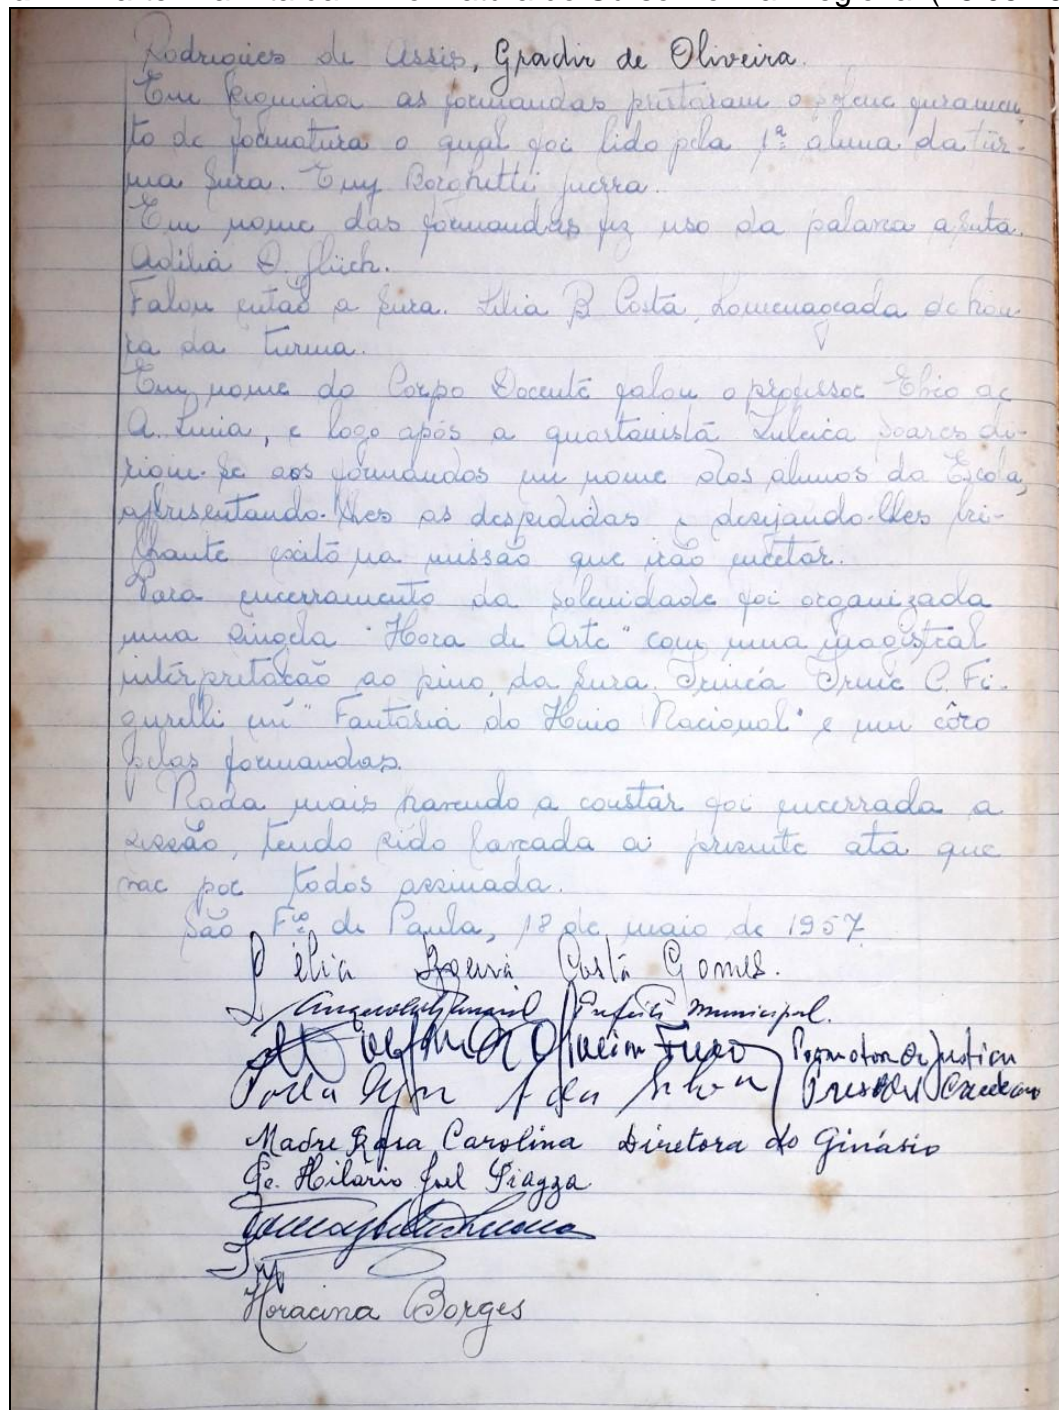 Rodrigues de Assis, Gradir de Oliveira.
Em seguida as formandas prestaram o solene juramen-
to de formatura o qual foi lido pela 1ª aluna da tur-
ma Snra. Eny Borghetti Guerra.
Em nome das formandas fez uso da palavra a snta.
Adília D.
Falou então a Snra. Lélia B Costa, homenageada de hon-
ra da turma.
Em nome do Corpo Docente falou o professor Ebio de
A. Luria, e logo após a quartanista Zuleica Soares di-
rigiu-se aos formandos em nome dos alunos da Escola,
apresentando-lhes as despedidas e desejando-lhes bri-
lhante exito na missão que irão encetar.
Para encerramento da solenidade foi organizada
uma singela "Hora de Arte" com uma magistral
interpretação ao pino, da Snra. C. Fi-
gurelli em "Fantasia do Hino Nacional" e um côro
pelas formandas.
Nada mais havendo a constar foi encerrada a
sessão, tendo sido lavrada a presente ata que
vae por todos assinada.
São Fco de Paula, 18 de maio de 1957
Lélia Costa Gomes.
Prefeito Municipal.
Promotor de Justiça
da Silva
Madre Rosa Carolina Diretora do Ginásio
Pe. Hilário José Piazza
Horacina Borges